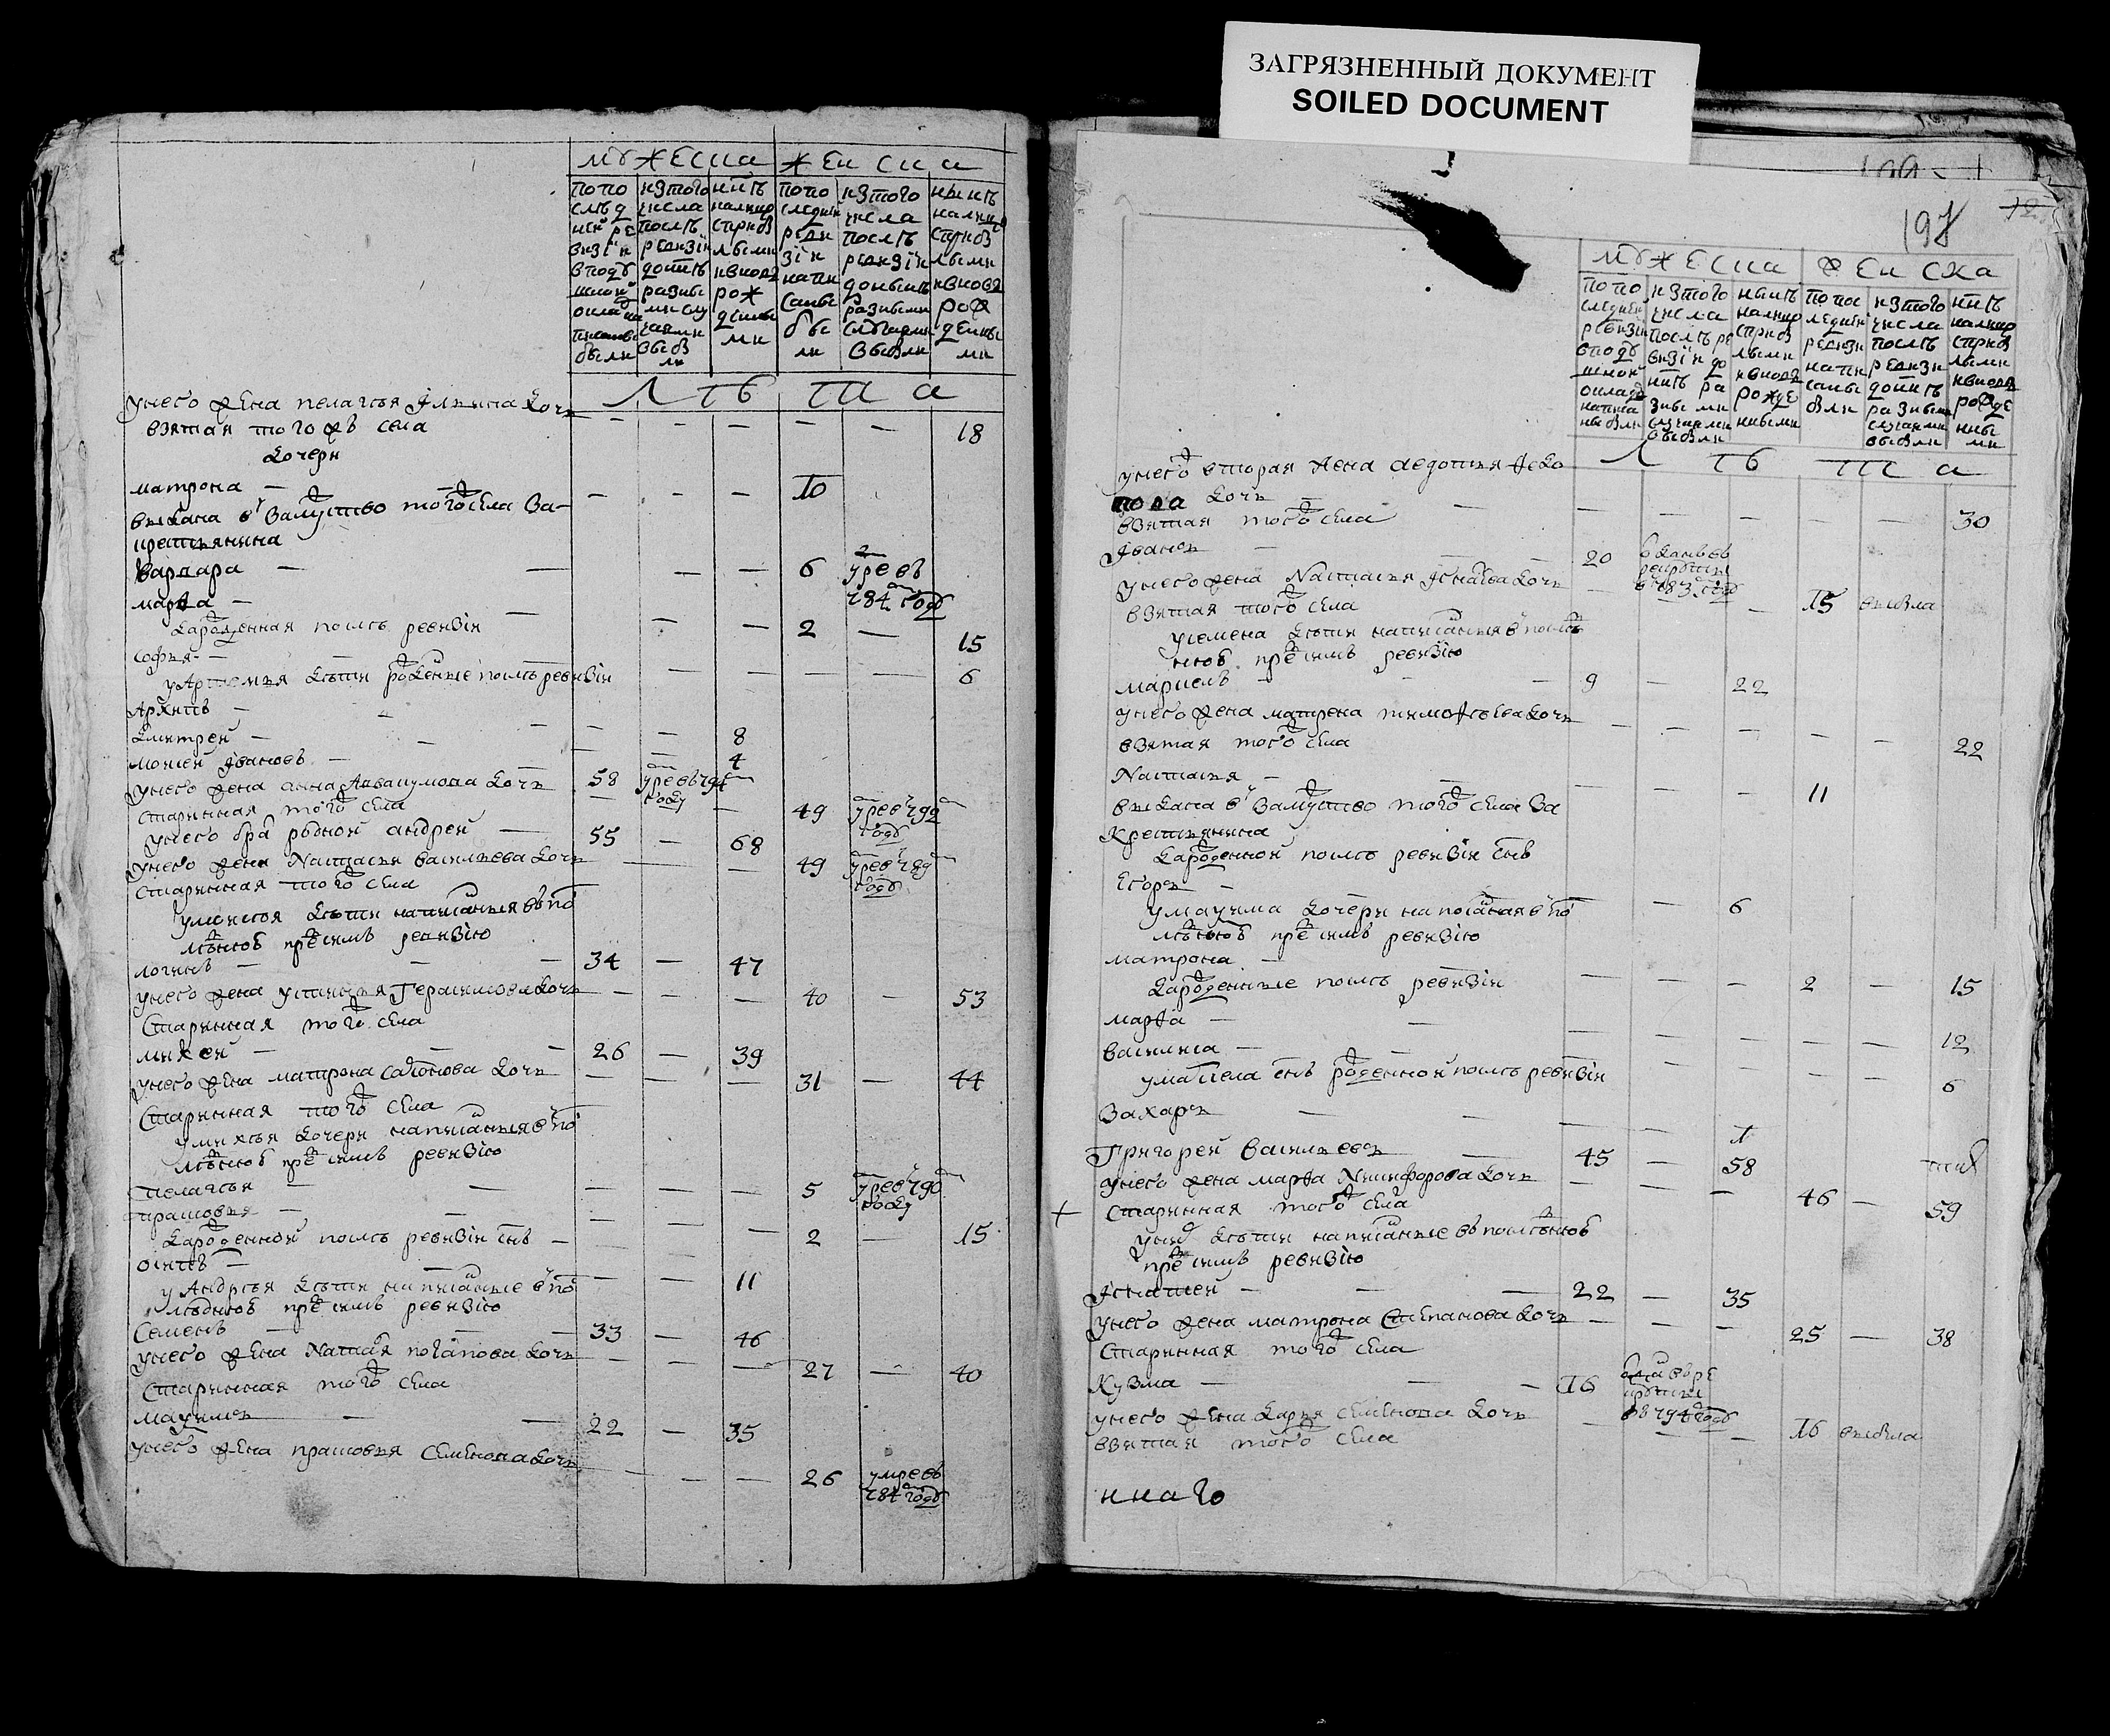 ЗАГРЯЗНЕННЫЙ ДОКУМЕНТ
SOILED DOCUMENT
мужеска женска
попо слѣд ней ре визіи в поду шной окла
изтого числа послѣ ревизіи донынѣ разны ми слу чаями выбы ли
нынѣ налицо с прибы лыми и вновь рож денны ми
попо следне реви зіи напи саны бы ли
изтого числа послѣ ревизіи донынѣ разными случаями выбыли
нынѣ налицо с прибы лыми и вновь рож денны ми
лѣта
унего жена пелагея Ильина дочь
взятая того жъ села 18
дочери
матрона — 10
выдана в замужство того села за
крестьянина
варвара — 6 умре въ 784 году
марфа — 2 — 15
да рожденная после ревизіи
софья — 6
у Артемья дети рожденые после ревизіи
Архипъ — 8
дмитрей — 4
мосей Ивановъ — 58 умре въ 794 году
унего жена анна Аввакумова дочь 49 умре въ 792 году
старинная того села
унего брат родной андрей — 55 — 68
унего жена Наталья васильева дочь 49 умре въ 789 году
старинная того села
у мосея дети написанныя в по
следнюю пред симъ ревизію
логинъ — 34 — 47
унего жена устинья Герасимова дочь 40 — 53
старинная того села
михей — 26 — 39
унего жена матрона сафонова дочь 31 — 44
старинная того села
у михея дочери написанныя в по
следнюю пред симъ ревизію
пелагея — 5 умре 790 году
прасковья — 2 — 15
да рожденной после ревизіи сынъ
осипъ — 11
у Андрея дети написанные в по
следнюю пред симъ ревизію
Семенъ — 33 — 46
унего жена Наталья потапова дочь 27 — 40
старинная того села
маѯимъ — 22 — 35
унего жена прасковья Семенова дочь 26 умре въ 784 году
198
мужеска женска
попо следней ревизіи в поду шной окладъ написа ны были
изтого числа послѣ ре визіи до нынѣ ра зны ми случаями выбыли
нынѣ налицо с прибы лыми и вновь рожде нными
попос ледней ревизи напи саны были
изтого числа послѣ ревизи донынѣ разными случаями выбыли
нынѣ налицо с прибы лыми и вновь рожде нны ми
лѣта
унего вторая жена авдотья
дочь
взятая того села 30
Иванъ — 20 отданъ въ рекруты в 783 году
унего жена Наталья Игнатьева дочь 15 выбыла
взятая того села
у семена дети написанныя в послед
нюю пред симъ ревизію
маркелъ — 9 — 22
унего жена матрена тимофеева дочь
взятая того села 22
Наталья — 11
выдана в замужство того села за
крестьянина
да рожденной после ревизіи сынъ
Егоръ — 6
у маѯима дочери написанныя в по
следнюю пред симъ ревизію
матрона — 2 — 15
да рожденные после ревизіи
марфа — 12
василиса — 6
сынъ рожденной после ревизіи
Захаръ — 1
Григорей Васильевъ 45 — 58
унего жена марфа Никифорова дочь 46 — 59
старинная того села
у них дети написанные в последнюю
пред симъ ревизію
Игнатей — 22 — 35
унего жена матрона Степанова дочь 25 — 38
старинная того села
Кузма — 16 отдан в рекруты в 794 году
унего жена дарья Семенова дочь 16 выбыла
взятая того села
у него